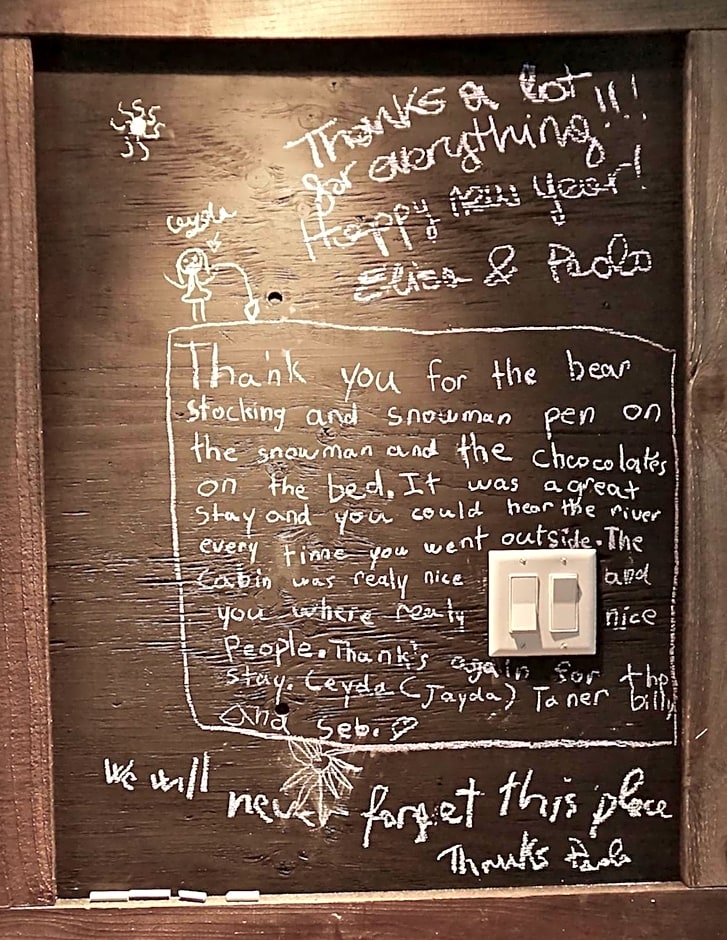 Thanks a lot!!!
for everything!
Happy new year!
Elisa & Paolo
Ceyda
Thank you for the bear
stocking and snowman pen on
the snowman and the chcocolates
on the bed. It was a great
stay and you could hear the river
every time you went outside. The
cabin was realy nice and
you where realy nice
People. Thank's again for the
stay. Ceyda (Jayda) Taner billy
and seb.
we will never forget this place
Thanks Paolo